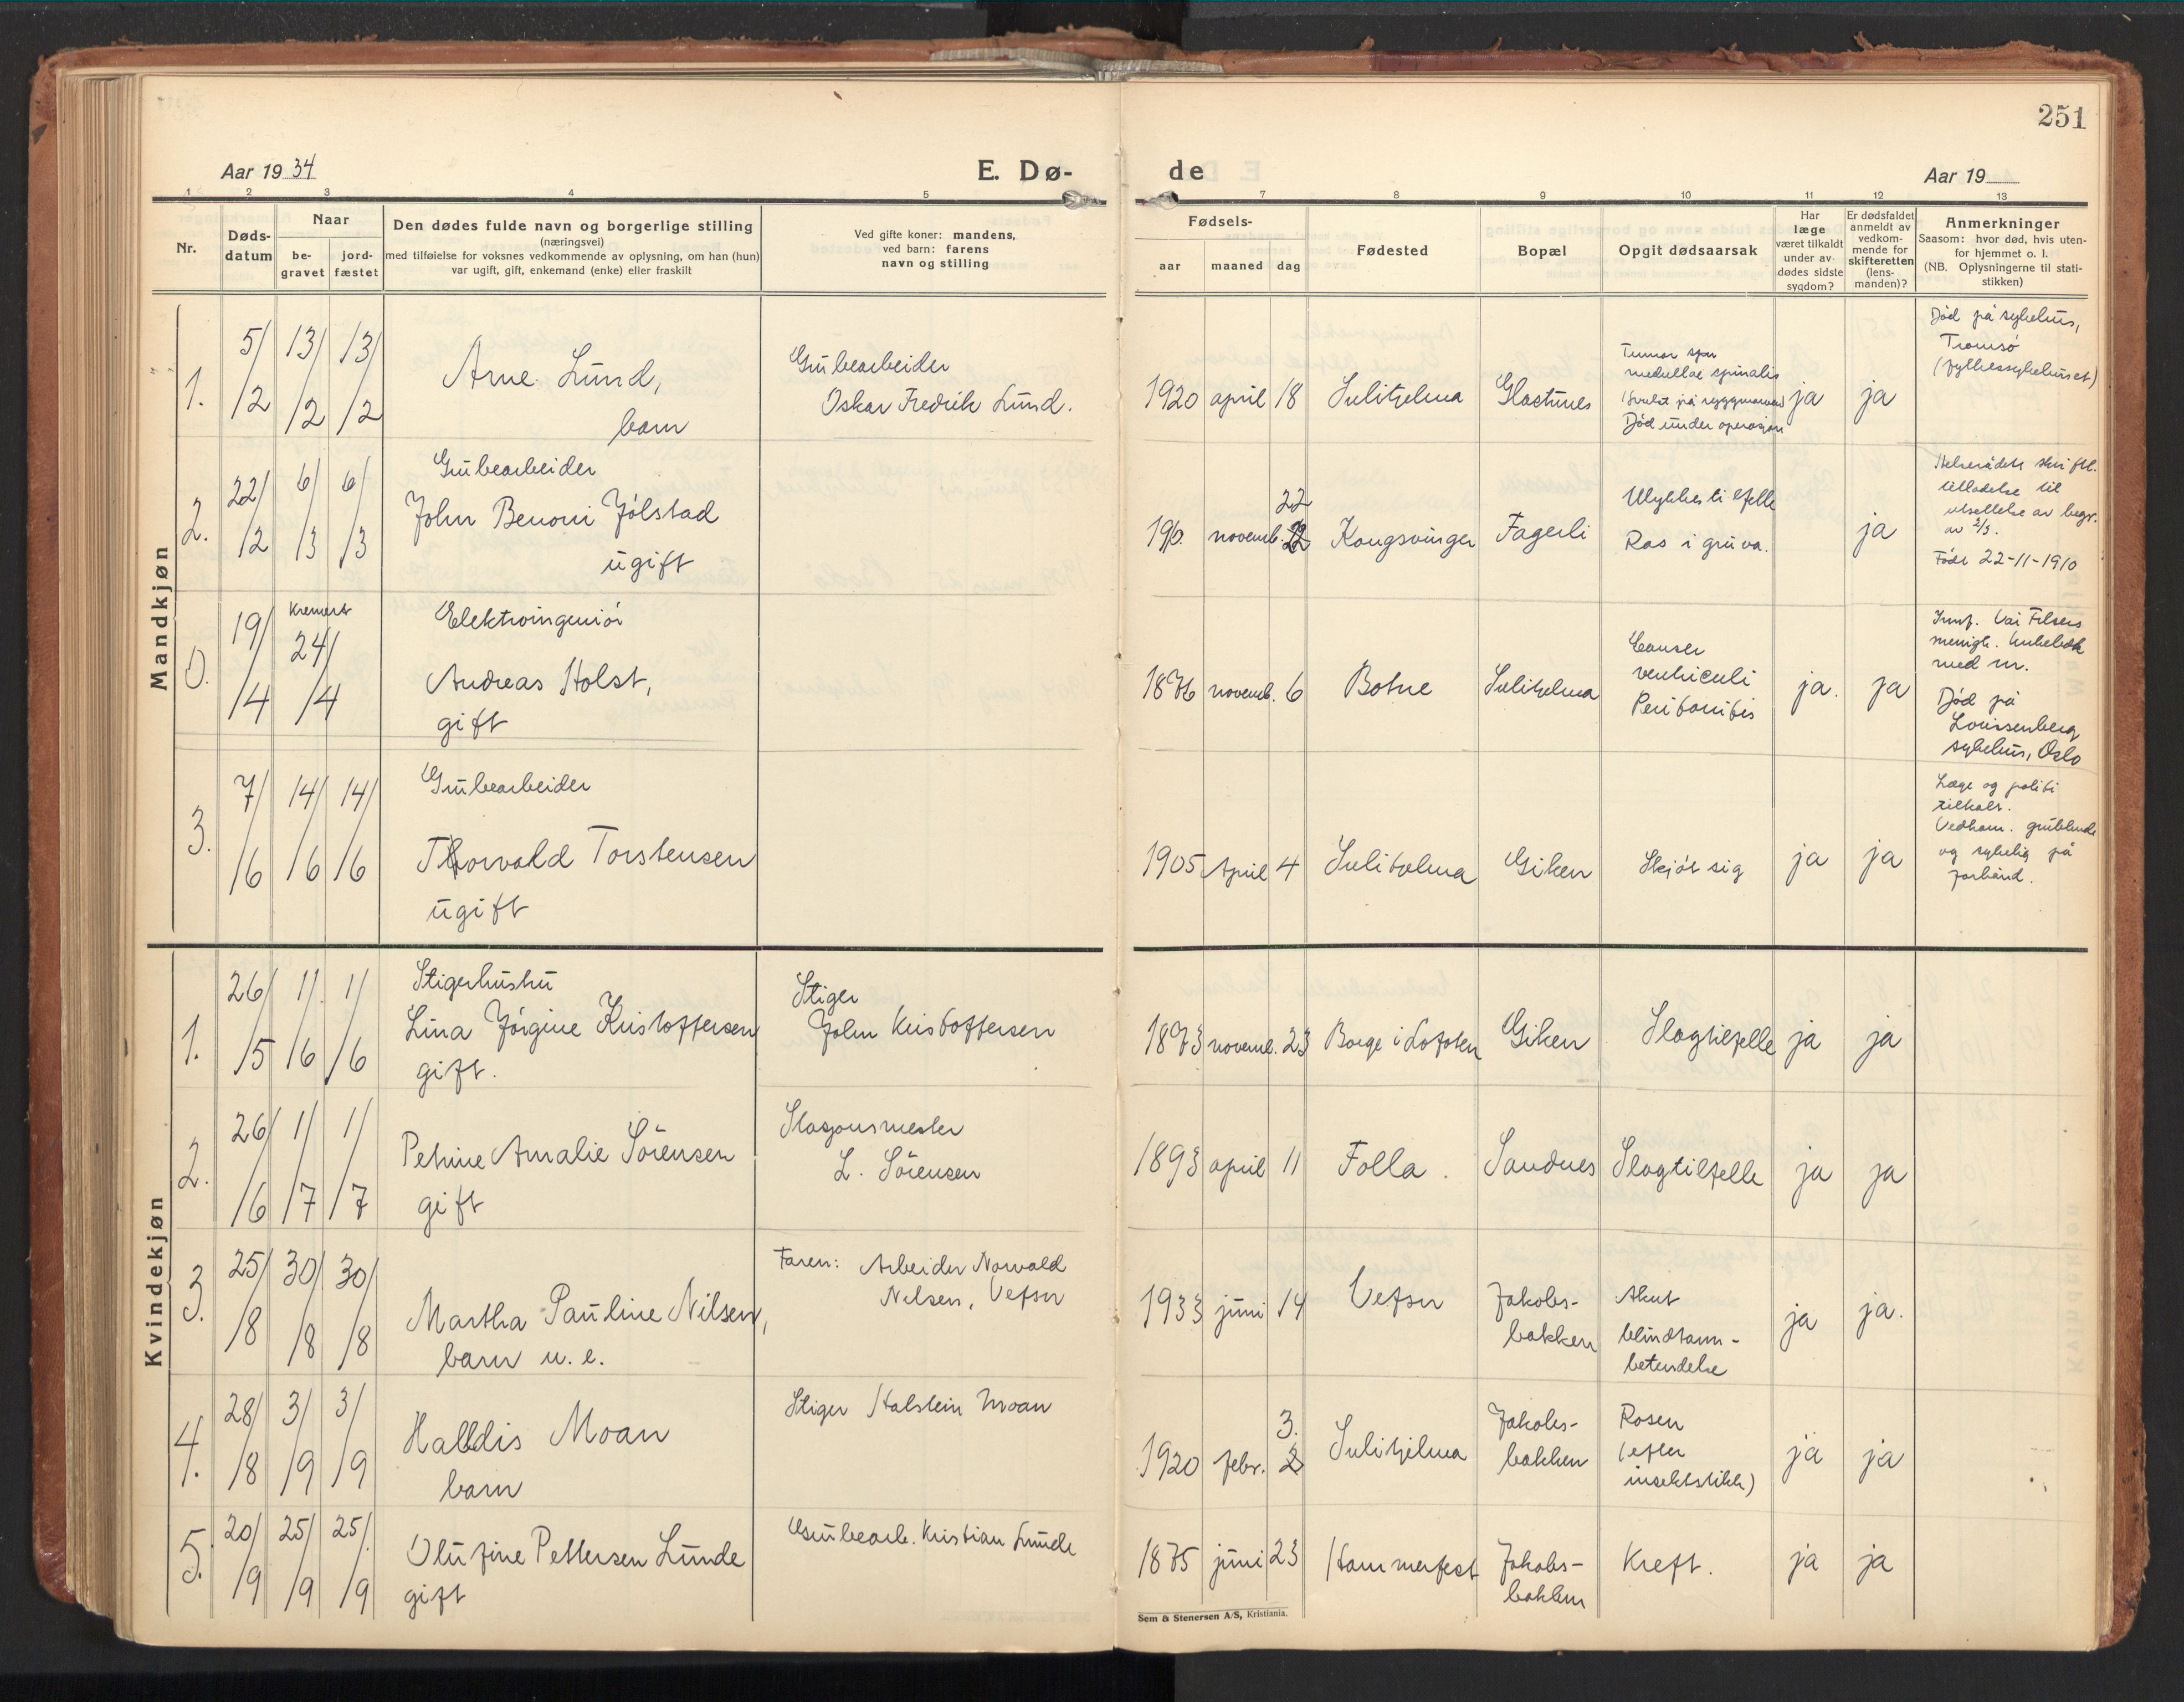 251
Aar 1934
E. Dø-
de
Aar 19
1 2 3 4 5 7 8 9 10 11 12 13
Nr.
Døds-
datum
Naar
be-
gravet
jord-
fæstet
Den dødes fulde navn og borgerlige stilling
(næringsvei)
med tilføielse for voksnes vedkommende av oplysning, om han (hun)
var ugift, gift, enkemand (enke) eller fraskilt
Ved gifte koner: mandens,
ved barn: farens
navn og stilling
Fødsels-
aar maaned dag
Fødested
Bopæl
Opgit dødsaarsak
Har
læge
været tilkaldt
under av-
dødes sidste
sygdom?
Er dødsfaldet
anmeldt av
vedkom-
mende for
skifteretten
(lens-
manden)?
Anmerkninger
Saasom: hvor død, hvis uten-
for hjemmet o. l.
(NB. Oplysningerne til stati-
stikken)
Mandkjøn
1.
5/2 13/2 13/2
Arne Lund,
barn
Grubearbeider
Oskar Fredrik Lund.
1920 april 18
Sulitjelma
Glastunes
Tumor
medullae spinalis
(Svulst på ryggmarven)
Død under operasjon
ja
ja
Død på sykehus,
Tromsø
(fylkessykehuset)
2.
22/2 6/3 6/3
Grubearbeider
John Benoni Jølstad
ugift
1910. novemb. 22
Kongsvinger
Fagerli
Ulykkestilfelle
Ras i gruva.
ja
Helserådets skriftl.
tilladelse til
utsettelse av begr.
av 2/3.
Født 22-11-1910
0.
19/4
Kremert
24/4
Elektroingeniør
Andreas Holst,
gift
1876 novemb. 6
Botne
Sulitjelma
Cancer
ventriculi
Peritonitis
ja.
ja
menigh.
med nr.
Død på
Lovissenberg
sykehus, Oslo
3.
7/6 14/6 14/6
Grubearbeider
Thorvald Torstensen
ugift
1905 April 4
Sulitjelma
Giken
Skjøt sig
ja
ja
Læge og politi
tilkalt.
Vedkom. grublende
og sykelig på
forhånd.
Kvindekjøn
1.
26/5 1/6 1/6
Stigerhustru
Lina Jørgine Kristoffersen
gift.
Stiger
John Kristoffersen
1873 novemb. 23
Borge i Lofoten
Giken
Slagtilfelle
ja
ja
2.
26/6 1/7 1/7
Petrine Amalie Sörensen
gift
Stasjonsmester
L. Sörensen
1893 april 11
Folla.
Sandnes
Slagtilfelle
ja
ja
3.
25/8 30/8 30/8
Martha Pauline Nilsen,
barn u. e.
Faren: Arbeider Norvald
Nilsen, Vefsn
1933 juni 14
Vefsn
Jakobs-
bakken
Akut
blindtarm-
betendelse
ja
ja.
4.
28/8 3/9 3/9
Halldis Moan
barn
Stiger Halstein Moan
1920 febr. 3.
Sulitjelma
Jakobs-
bakken
Rosen
(efter
insektstikk)
ja
ja
5.
20/9 25/9 25/9
Olufine Pettersen Lunde
gift
Grubearb. Kristian Lunde
1875 juni 23
Hammerfest
Jakobs-
bakken
Kreft.
ja
ja
Sem & Stenersen A/S, Kristiania.